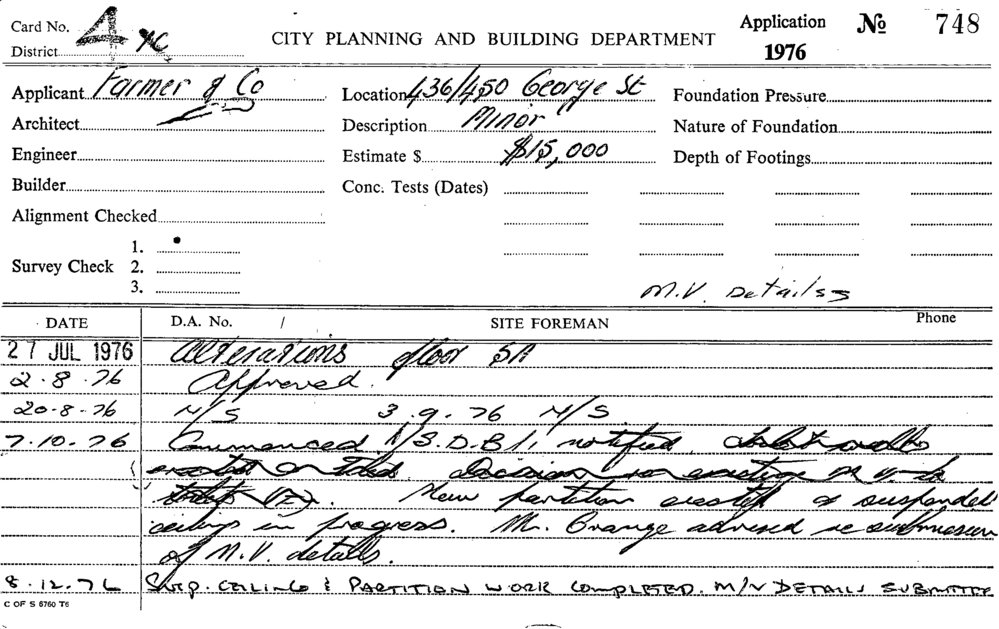 Card No. 4 XC
District
CITY PLANNING AND BUILDING DEPARTMENT
Application No 748
1976
Applicant Farmer & Co
Location 436/450 George St
Foundation Pressure
Architect
Description Minor
Nature of Foundation
Engineer
Estimate $ $15,000
Depth of Footings
Builder
Conc. Tests (Dates)
Alignment Checked
1.
Survey Check 2.
3.
M.V. Details
DATE D.A. No. / SITE FOREMAN Phone
27 JUL 1976 Alterations floor 5A
2.8.76 Approved.
20-8-76 N/S 3.9.76 N/S
7.10.76 Commenced N/S.D.B.1. notified
New partition erected & suspended
ceilings in progress. Mr. Grange advised re submission
of M.V. details.
8.12.76 SUSP. CEILING & PARTITION WORK COMPLETED. M/V DETAILS SUBMITTED
C OF S 6760 T6